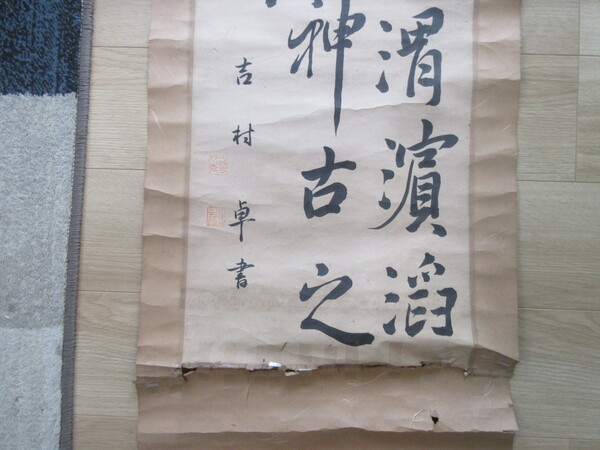 渭濱滔
神古之
吉村卓書